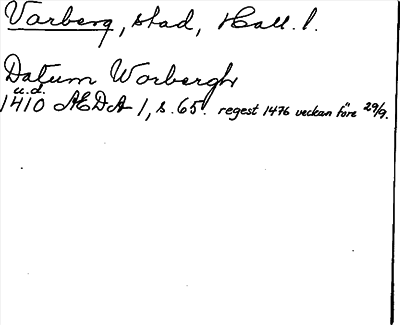 Varberg, stad, Hall. l.
Datum Warbergh
u.d.
1410 AEDA 1, s. 65. regest 1476 veckan före 29/9.